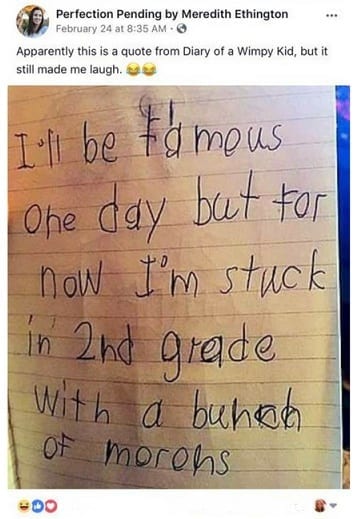 Perfection Pending by Meredith Ethington
February 24 at 8:35 AM
Apparently this is a quote from Diary of a Wimpy Kid, but it
still made me laugh. 😂😂
I'll be famous
one day but for
now I'm stuck
in 2nd grade
with a bunch
of morons